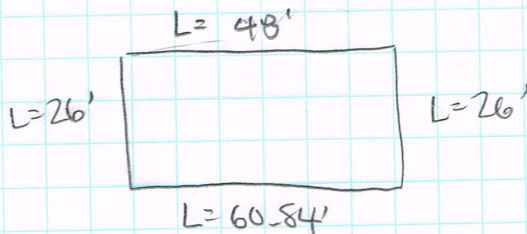 L= 48'
L=26'
L=26'
L= 60.84'